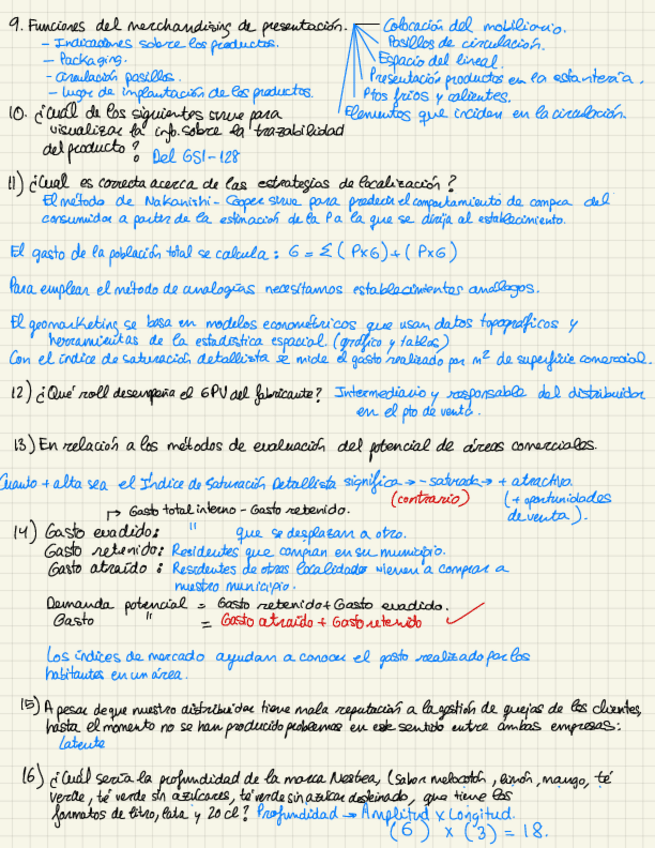 9. Funciones del merchandising de presentación.
- Indicaciones sobre los productos.
- Packaging.
- circulación pasillos.
- Lugar de implantación de los productos.
Colocación del mobiliario.
Pasillos de circulación.
Espacio del lineal.
Presentación productos en la estantería.
Ptos fríos y calientes.
Elementos que inciden en la circulación.
10. ¿Cuál de los siguientes sirve para
visualizar la info. sobre la trazabilidad
del producto? Del GS1-128
11) ¿Cual es correcta acerca de las estrategias de localización?
El método de Nakanishi-Cooper sirve para predecir el comportamiento de compra del
consumidor a partir de la estimación de la P a la que se dirija al establecimiento.
El gasto de la población total se calcula: G = Σ (P×G) + (P×G)
Para emplear el método de analogías necesitamos establecimientos análogos.
El geomarketing se basa en modelos econométricos que usan datos topográficos y
herramientas de la estadística espacial. (gráfico y tablas)
Con el índice de saturación detallista se mide el gasto realizado por m² de superficie comercial.
12) ¿Qué roll desempeña el GPV del fabricante? Intermediario y responsable del distribuidor
en el pto de venta.
13) En relación a los métodos de evaluación del potencial de áreas comerciales.
Cuanto + alta sea el Índice de Saturación Detallista significa → - saturada → + atractiva
(contrario) (+ oportunidades
de venta).
↱ Gasto total interno - Gasto retenido.
14) Gasto evadido: " que se desplazan a otro.
Gasto retenido: Residentes que compran en su municipio.
Gasto atraído: Residentes de otras localidades vienen a comprar a
nuestro municipio.
Demanda potencial = Gasto retenido + Gasto evadido.
Gasto " = Gasto atraido + Gasto retenido ✓
Los índices de mercado ayudan a conocer el gasto realizado por los
habitantes en un área.
15) A pesar de que nuestro distribuidor tiene mala reputación a la gestión de quejas de los clientes,
hasta el momento no se han producido problemas en este sentido entre ambas empresas:
Latente
16) ¿Cuál sería la profundidad de la marca Nestea, (Sabor melocotón, limón, mango, té
verde, té verde sin azúcares, té verde sin azúcar desteinado, que tiene los
formatos de litro, lata y 20 cl? Profundidad → Amplitud x Longitud.
(6) x (3) = 18.